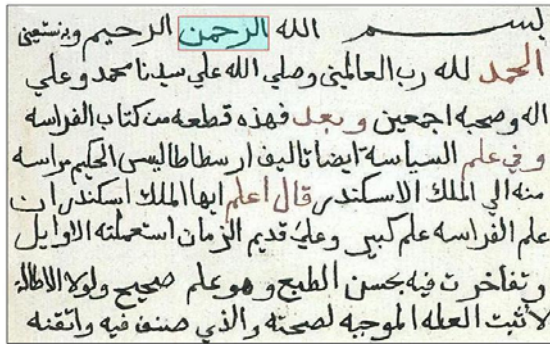 بسم الله الرحمن الرحيم وبه نستعين
الحمد لله رب العالمين وصلي الله علي سيدنا محمد وعلي
اله وصحبه اجمعين وبعد فهذه قطعه من كتاب الفراسه
وفي علم السياسه ايضا تاليف ارسطاطاليس الحكيم مراسه
منه الي الملك الاسكندر قال اعلم ايها الملك اسكندر ان
علم الفراسه علم كبير وعلي قديم الزمان استعملته الاوايل
وتفاخرت فيه بحسن الطبع وهو علم صحيح ولولا الاطالة
لاثبت العله الموجبه لصحته والذي صنف فيه واتقنه